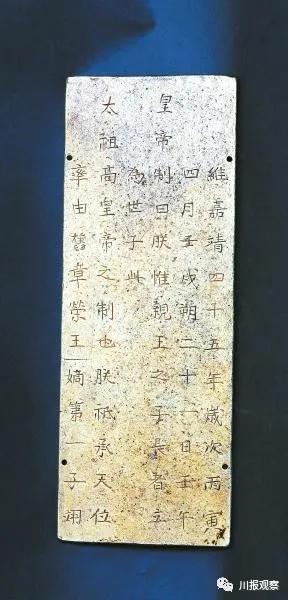 維嘉靖四十五年歲次丙寅
四月壬戌朔二十一日壬午
皇帝制曰朕惟親王之子長者立
為世子此
太祖高皇帝之制也朕祗承天位
率由舊章榮王嫡第一子翊
川报观察